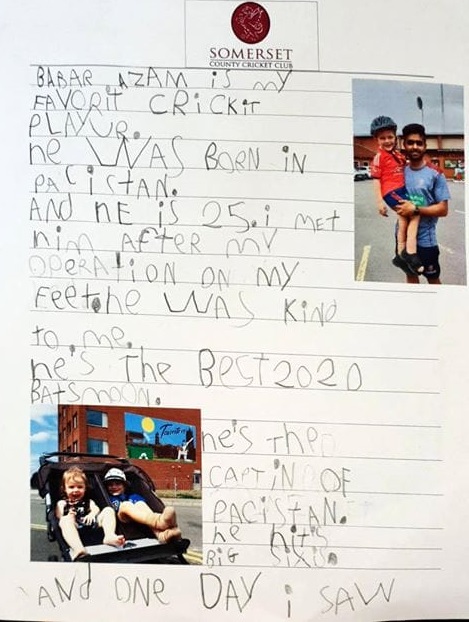 SOMERSET
COUNTY CRICKET CLUB
BABAR AZAM iS my
FAVORiT CRiCKiT
PLAYUR.
he WAS BORN iN
PACiSTAN.
AND hE iS 25. i MET
him AFTER MY
OPERATiON ON MY
FEET.he WAS KiND
to me.
he's The BEST 2020
BATSMOON.
Taunton
he's The
CAPTiN OF
PACiSTAN.
he hits
BiG SiXiS.
AND ONE DAY i SAW